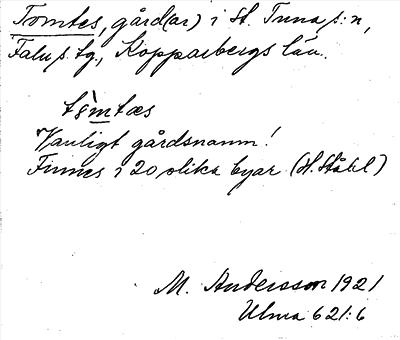 Tomtes, gård(ar) i St. Tuna s:n,
Falu s. tg., Kopparbergs län.
tòmtæs
Vanligt gårdsnamn!
Finnes i 20 olika byar (H. Ståhl)
M. Andersson 1921
Ulma 621:6